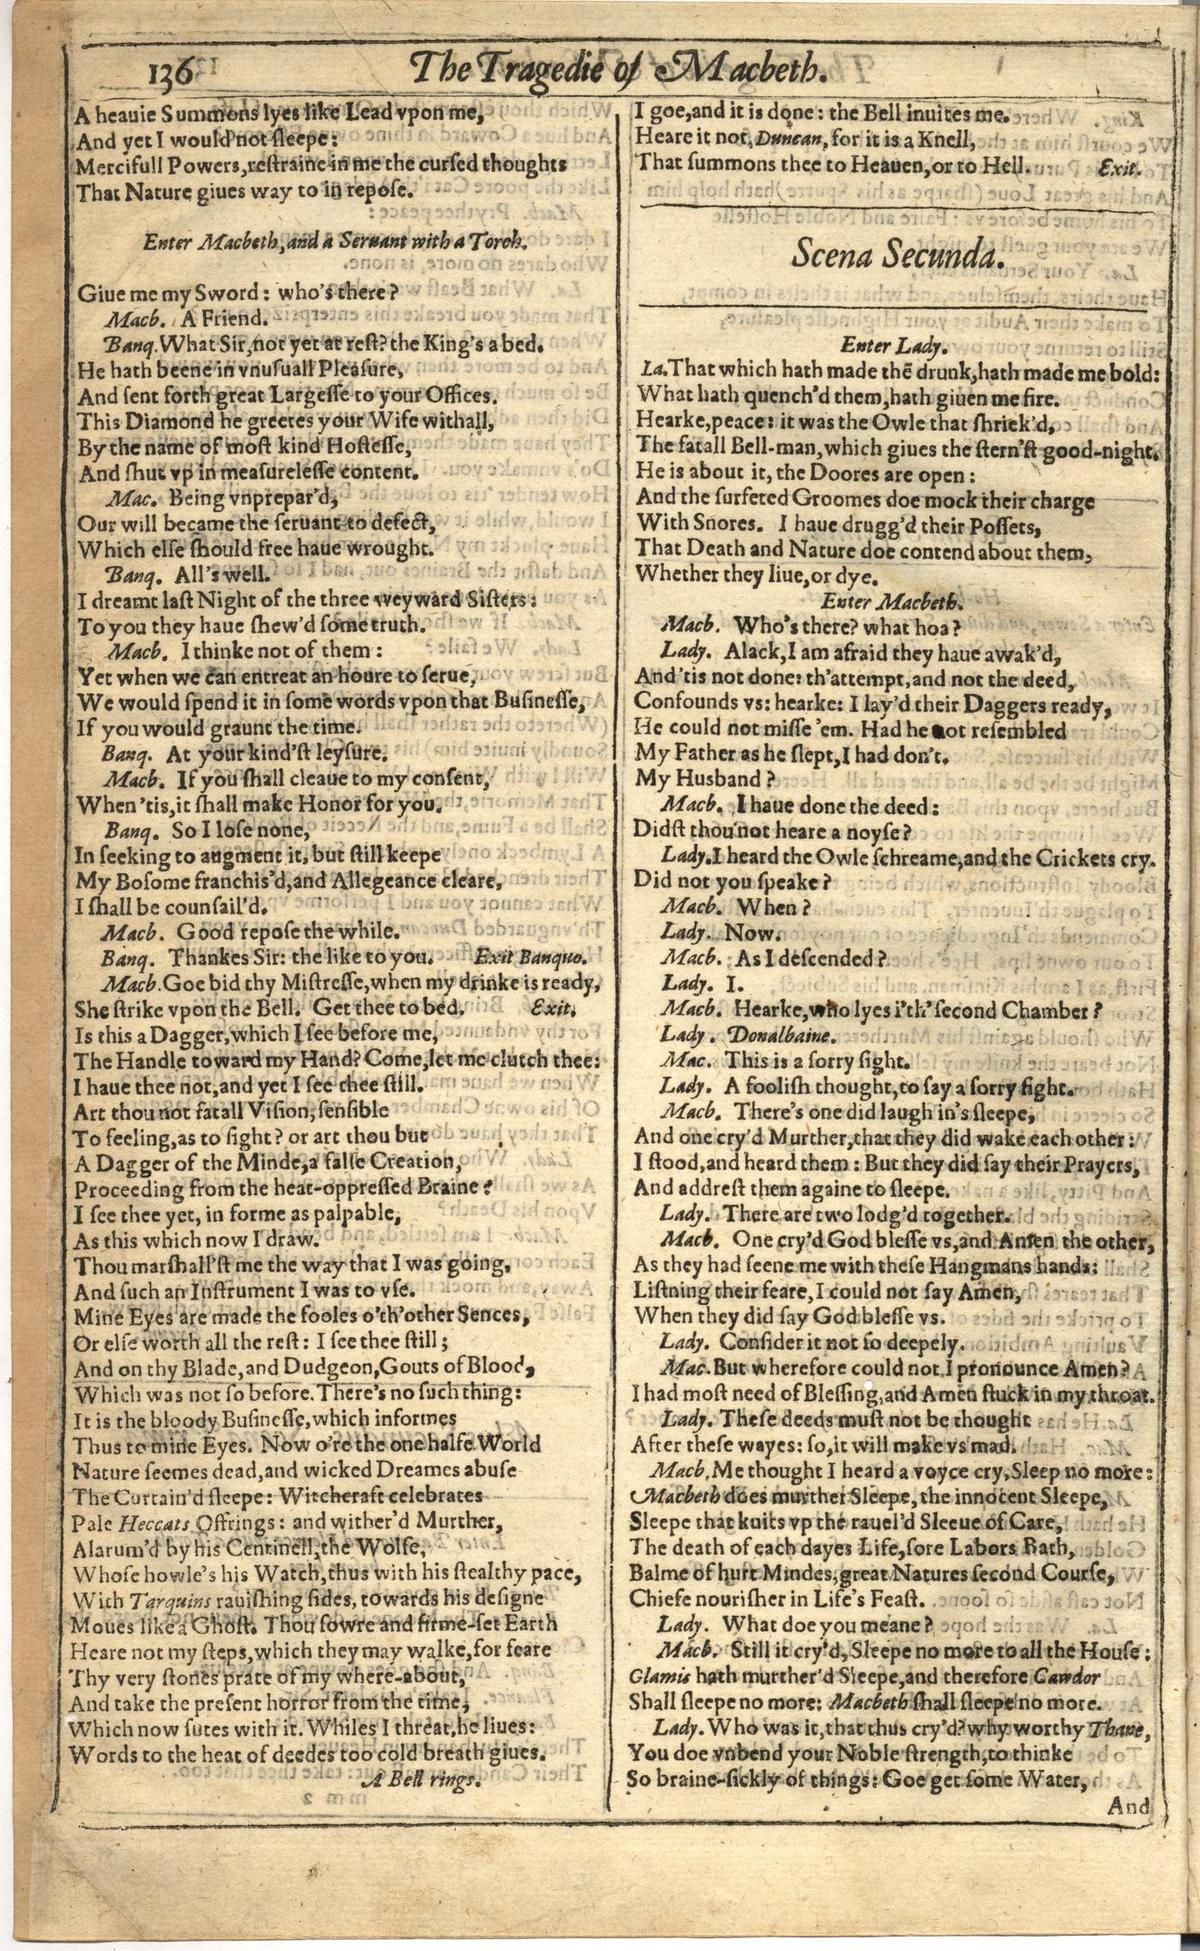 136
The Tragedie of Macbeth.
A heauie Summons lyes like Lead vpon me,
And yet I would not ſleepe:
Mercifull Powers, reſtraine in me the curſed thoughts
That Nature giues way to in repoſe.
Enter Macbeth, and a Seruant with a Torch.
Giue me my Sword: who's there?
Macb. A Friend.
Banq. What Sir, not yet at reſt? the King's a bed.
He hath beene in vnuſuall Pleaſure,
And ſent forth great Largeſſe to your Offices.
This Diamond he greetes your Wife withall,
By the name of moſt kind Hoſteſſe,
And ſhut vp in meaſureleſſe content.
Mac. Being vnprepar'd,
Our will became the ſeruant to defect,
Which elſe ſhould free haue wrought.
Banq. All's well.
I dreamt laſt Night of the three weyward Siſters:
To you they haue ſhew'd ſome truth.
Macb. I thinke not of them:
Yet when we can entreat an houre to ſerue,
We would ſpend it in ſome words vpon that Buſineſſe,
If you would graunt the time.
Banq. At your kind'ſt leyſure.
Macb. If you ſhall cleaue to my conſent,
When 'tis, it ſhall make Honor for you.
Banq. So I loſe none,
In ſeeking to augment it, but ſtill keepe
My Boſome franchis'd, and Allegeance cleare,
I ſhall be counſail'd.
Macb. Good repoſe the while.
Banq. Thankes Sir: the like to you. Exit Banquo.
Macb. Goe bid thy Miſtreſſe, when my drinke is ready,
She ſtrike vpon the Bell. Get thee to bed. Exit.
Is this a Dagger, which I ſee before me,
The Handle toward my Hand? Come, let me clutch thee:
I haue thee not, and yet I ſee thee ſtill.
Art thou not fatall Viſion, ſenſible
To feeling, as to ſight? or art thou but
A Dagger of the Minde, a falſe Creation,
Proceeding from the heat-oppreſſed Braine?
I ſee thee yet, in forme as palpable,
As this which now I draw.
Thou marſhall'ſt me the way that I was going,
And ſuch an Inſtrument I was to vſe.
Mine Eyes are made the fooles o'th'other Sences,
Or elſe worth all the reſt: I ſee thee ſtill;
And on thy Blade, and Dudgeon, Gouts of Blood,
Which was not ſo before. There's no ſuch thing:
It is the bloody Buſineſſe, which informes
Thus to mine Eyes. Now o're the one halfe World
Nature ſeemes dead, and wicked Dreames abuſe
The Curtain'd ſleepe: Witchcraft celebrates
Pale Heccats Offrings: and wither'd Murther,
Alarum'd by his Centinell, the Wolfe,
Whoſe howle's his Watch, thus with his ſtealthy pace,
With Tarquins rauiſhing ſides, towards his deſigne
Moues like a Ghoſt. Thou ſowre and firme-ſet Earth
Heare not my ſteps, which they may walke, for feare
Thy very ſtones prate of my where-about,
And take the preſent horror from the time,
Which now ſutes with it. Whiles I threat, he liues:
Words to the heat of deedes too cold breath giues.
A Bell rings.
I goe, and it is done: the Bell inuites me.
Heare it not, Duncan, for it is a Knell,
That ſummons thee to Heauen, or to Hell. Exit.
Scena Secunda.
Enter Lady.
La. That which hath made thē drunk, hath made me bold:
What hath quench'd them, hath giuen me fire.
Hearke, peace: it was the Owle that ſhriek'd,
The fatall Bell-man, which giues the ſtern'ſt good-night.
He is about it, the Doores are open:
And the ſurfeted Groomes doe mock their charge
With Snores. I haue drugg'd their Poſſets,
That Death and Nature doe contend about them,
Whether they liue, or dye.
Enter Macbeth.
Macb. Who's there? what hoa?
Lady. Alack, I am afraid they haue awak'd,
And 'tis not done: th'attempt, and not the deed,
Confounds vs: hearke: I lay'd their Daggers ready,
He could not miſſe 'em. Had he not reſembled
My Father as he ſlept, I had don't.
My Husband?
Macb. I haue done the deed:
Didſt thou not heare a noyſe?
Lady. I heard the Owle ſchreame, and the Crickets cry.
Did not you ſpeake?
Macb. When?
Lady. Now.
Macb. As I deſcended?
Lady. I.
Macb. Hearke, who lyes i'th' ſecond Chamber?
Lady. Donalbaine.
Mac. This is a ſorry ſight.
Lady. A fooliſh thought, to ſay a ſorry ſight.
Macb. There's one did laugh in's ſleepe,
And one cry'd Murther, that they did wake each other:
I ſtood, and heard them: But they did ſay their Prayers,
And addreſt them againe to ſleepe.
Lady. There are two lodg'd together.
Macb. One cry'd God bleſſe vs, and Amen the other,
As they had ſeene me with theſe Hangmans hands:
Liſtning their feare, I could not ſay Amen,
When they did ſay God bleſſe vs.
Lady. Conſider it not ſo deepely.
Mac. But wherefore could not I pronounce Amen?
I had moſt need of Bleſſing, and Amen ſtuck in my throat.
Lady. Theſe deeds muſt not be thought
After theſe wayes: ſo, it will make vs mad.
Macb. Me thought I heard a voyce cry, Sleep no more:
Macbeth does murther Sleepe, the innocent Sleepe,
Sleepe that knits vp the rauel'd Sleeue of Care,
The death of each dayes Life, ſore Labors Bath,
Balme of hurt Mindes, great Natures ſecond Courſe,
Chiefe nouriſher in Life's Feaſt.
Lady. What doe you meane?
Macb. Still it cry'd, Sleepe no more to all the Houſe:
Glamis hath murther'd Sleepe, and therefore Cawdor
Shall ſleepe no more: Macbeth ſhall ſleepe no more.
Lady. Who was it, that thus cry'd? why worthy Thane,
You doe vnbend your Noble ſtrength, to thinke
So braine-ſickly of things: Goe get ſome Water,
And